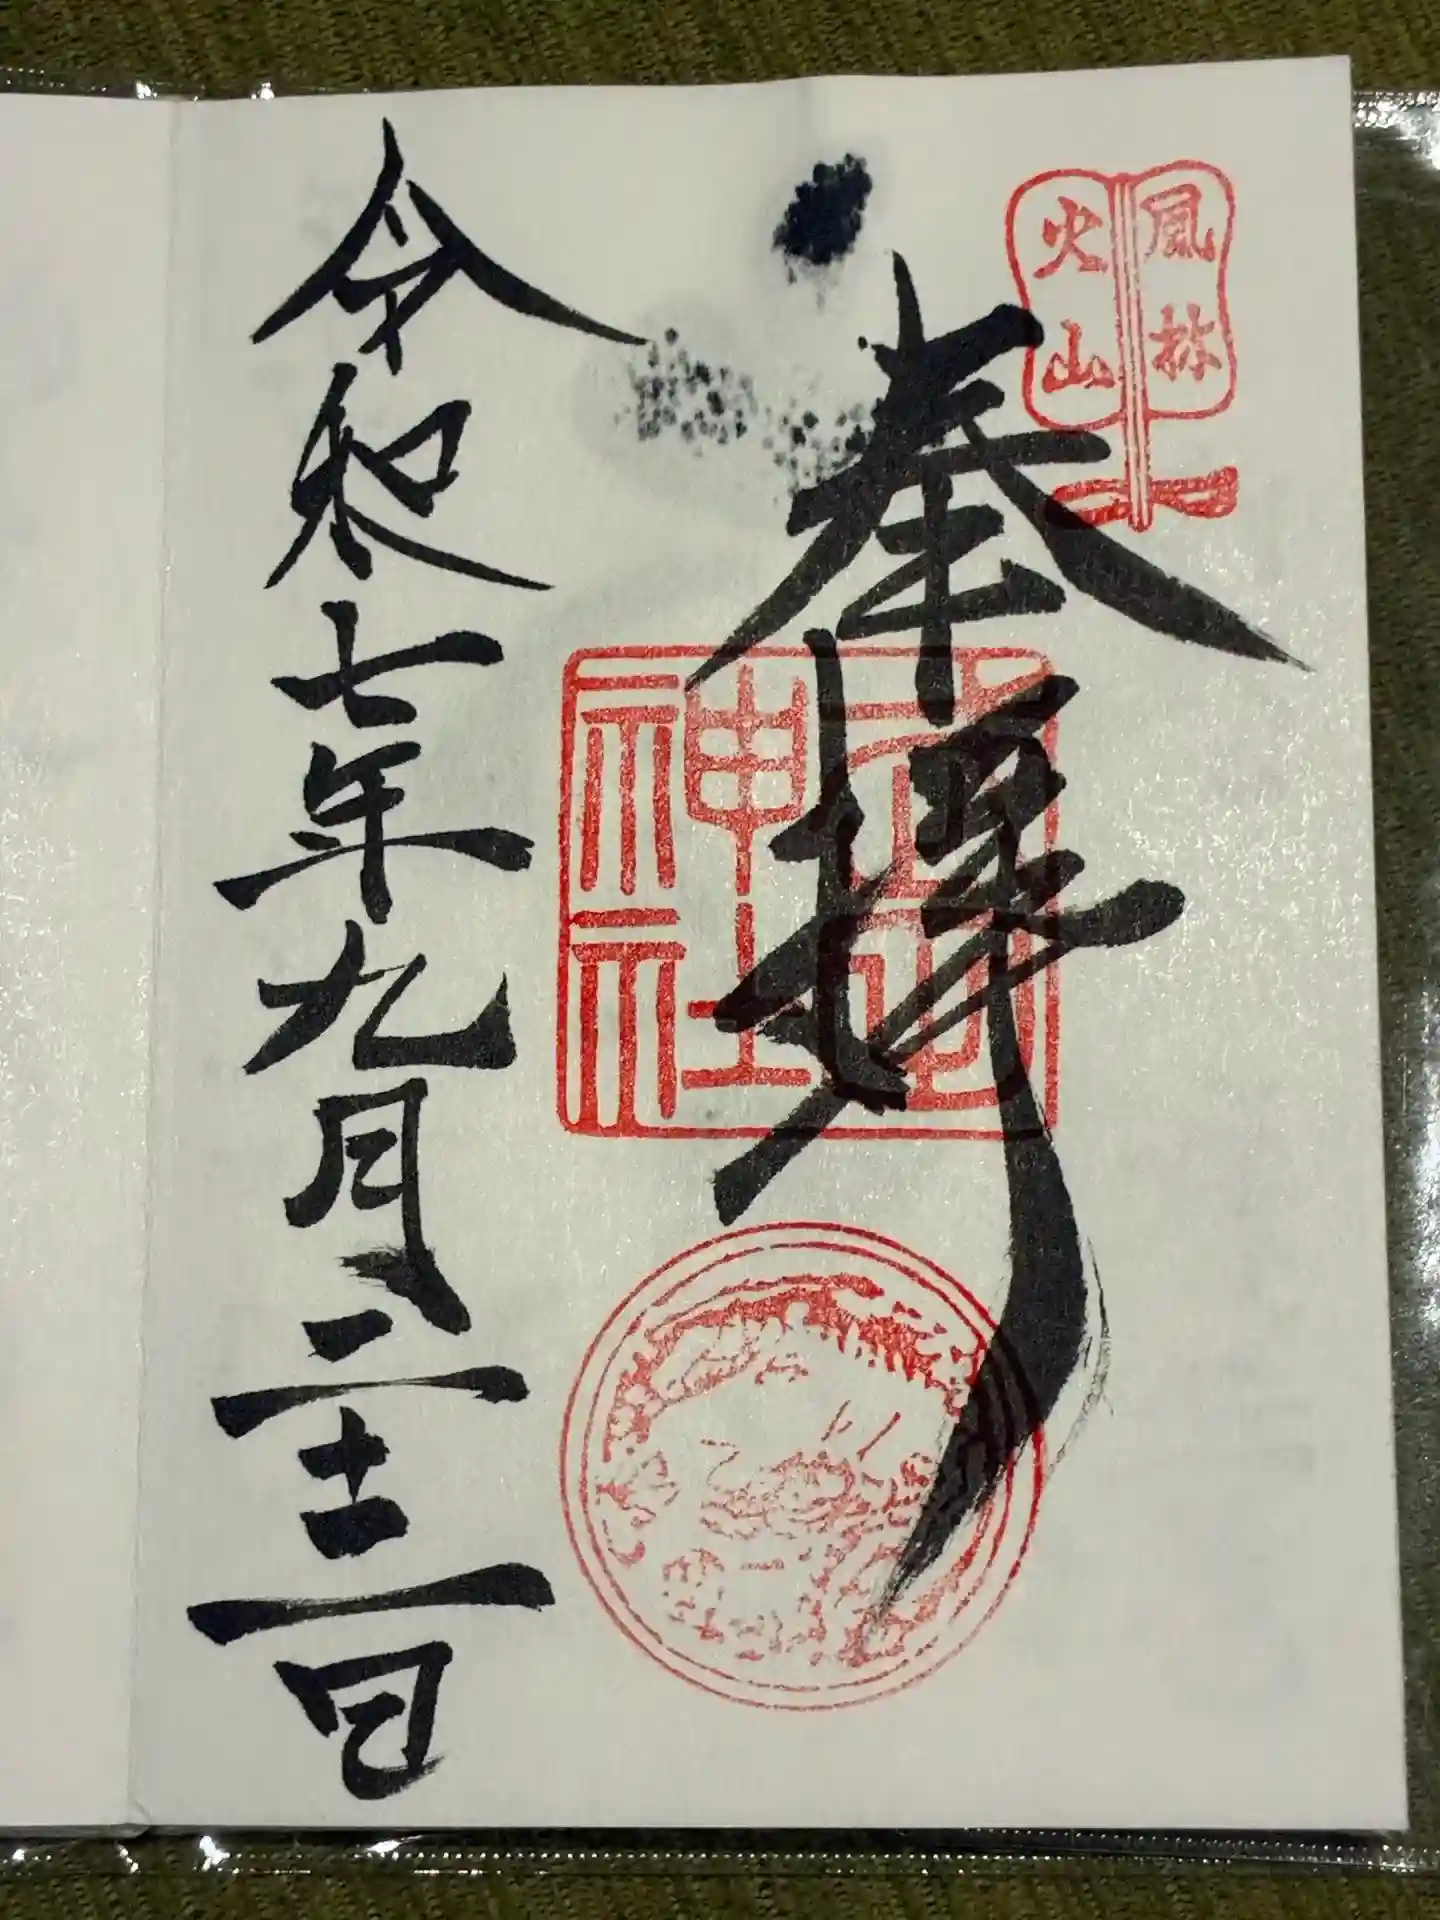 風林
火山
奉拝
神社
令和七年九月二十三日